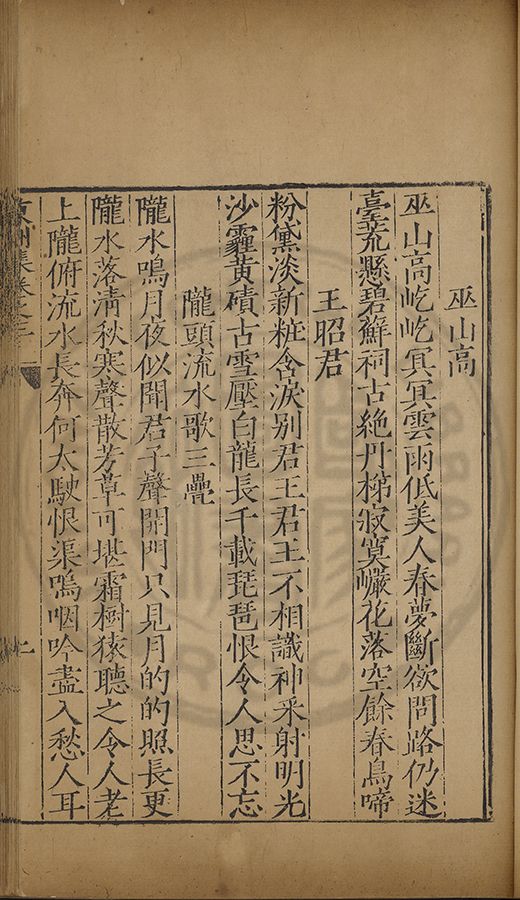 巫山高
巫山高屹屹冥冥雲雨低美人春夢斷欲問路仍迷
臺荒懸碧鮮祠古絶丹梯寂寞巖花落空餘春鳥啼
王昭君
粉黛淡新粧含淚别君王君王不相識神采射明光
沙霾黃磧古雪壓白龍長千載琵琶恨令人思不忘
隴頭流水歌三疊
隴水鳴月夜似聞君子聲開門只見月的的照長更
隴水落清秋寒聲散芳草可堪霜樹猿聽之令人老
上隴俯流水長奔何太駛恨渠嗚咽吟盡入愁人耳
集卷之二